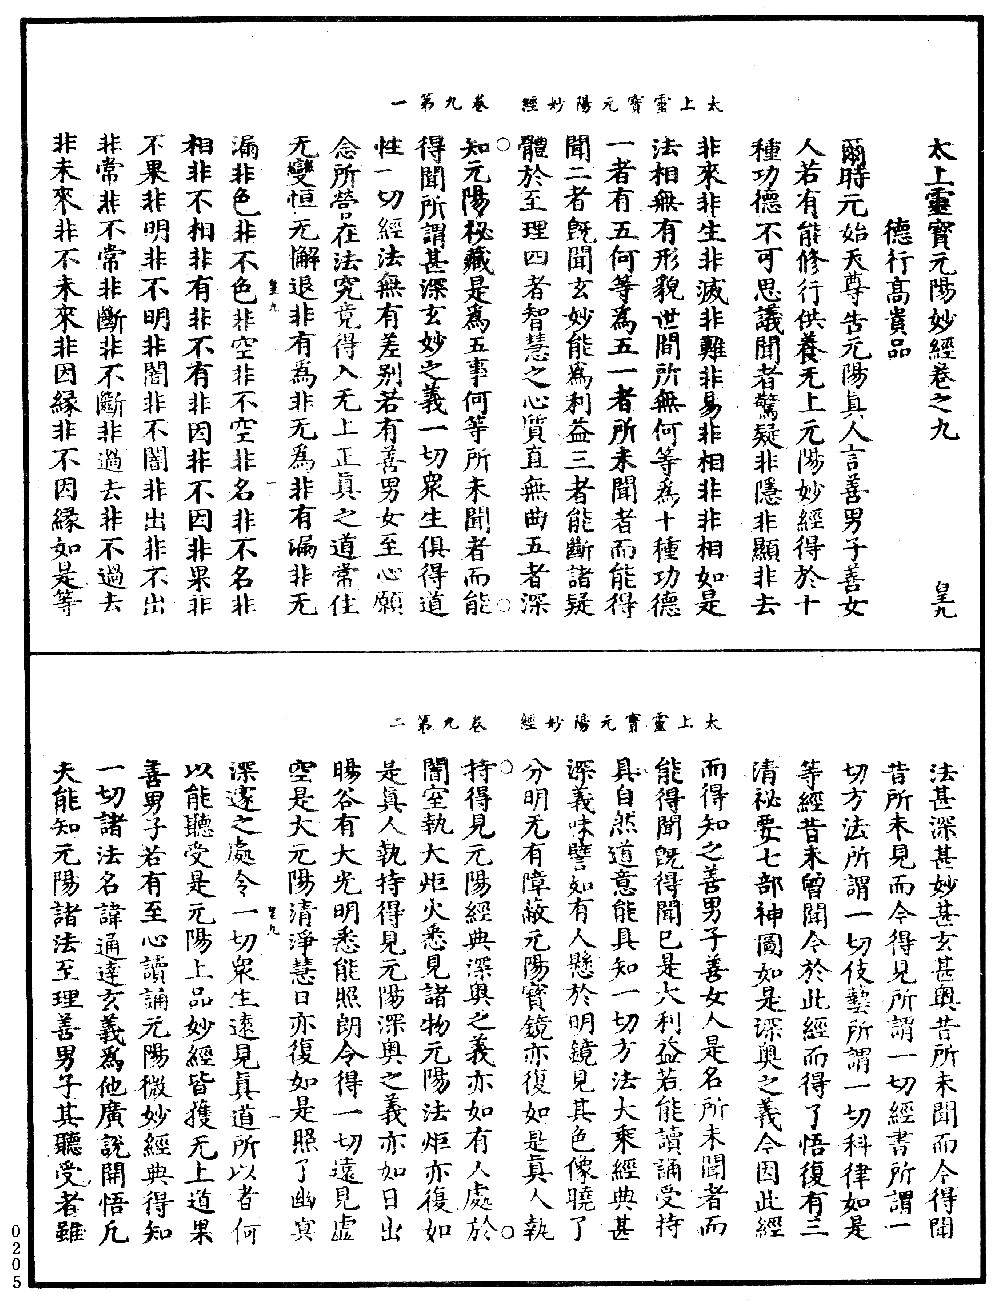 太上靈寶元陽妙經　卷九第一
太上靈寶元陽妙經卷之九　皇九
德行高貴品
爾時元始天尊告元陽真人言善男子善女
人若有能修行供養无上元陽妙經得於十
種功德不可思議聞者驚疑非隱非顯非去
非來非生非滅非難非易非相非非相如是
法相無有形貌世間所無何等為十種功德
一者有五何等為五一者所未聞者而能得
聞二者既聞玄妙能為利益三者能斷諸疑
體於至理四者智慧之心質直無曲五者深
知元陽秘藏是為五事何等所未聞者而能
得聞所謂甚深玄妙之義一切眾生俱得道
性一切經法無有差別若有善男女至心願
念所營在法究竟得入无上正真之道常住
无變恒无懈退非有為非无為非有漏非无
皇九　一
漏非色非不色非空非不空非名非不名非
相非不相非有非不有非因非不因非果非
不果非明非不明非闇非不闇非出非不出
非常非不常非斷非不斷非過去非不過去
非未來非不未來非因緣非不因緣如是等
太上靈寶元陽妙經　卷九第二
法甚深甚妙甚玄甚奧昔所未聞而今得聞
昔所未見而今得見所謂一切經書所謂一
切方法所謂一切伎藝所謂一切科律如是
等經昔未曾聞今於此經而得了悟復有三
清祕要七部神圖如是深奧之義今因此經
而得知之善男子善女人是名所未聞者而
能得聞既得聞已是大利益若能讀誦受持
具自然道意能具知一切方法大乘經典甚
深義味譬如有人懸於明鏡見其色像曉了
分明无有障蔽元陽寶鏡亦復如是真人執
持得見元陽經典深奧之義亦如有人處於
闇室執大炬火悉見諸物元陽法炬亦復如
是真人執持得見元陽深奧之義亦如日出
暘谷有大光明悉能照朗令得一切遠見虛
空是大元陽清淨慧日亦復如是照了幽冥
皇九　一
深邃之處令一切眾生遠見真道所以者何
以能聽受是元陽上品妙經皆獲无上道果
善男子若有至心讀誦元陽微妙經典得知
一切諸法名諱通達玄義為他廣說開悟凡
夫能知元陽諸法至理善男子其聽受者雖
0205